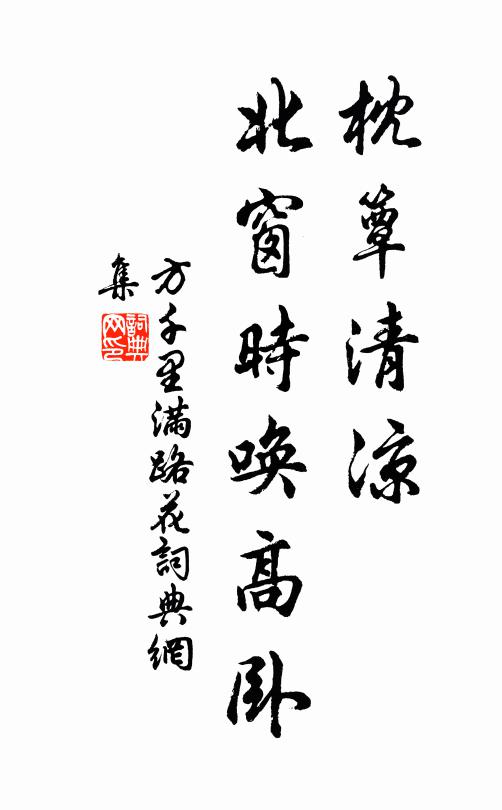 枕簟清涼
北窗時喚高卧
方千里滿路花詞典網
集
詞典
网印